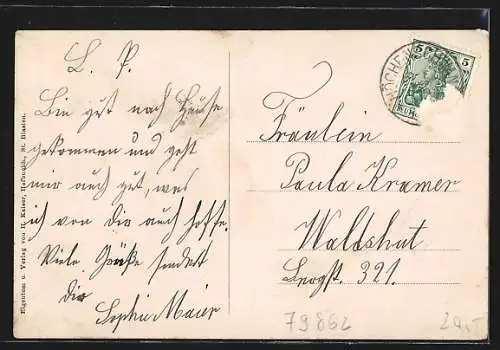 L. P.
Bin gut nach Hause
gekommen und geht
mir auch gut, was
ich von Dir auch hoffe.
Viele Grüße sendet
Dir
Sophie Maier
Fräulein
Paula Kramer
Waldshut
Bergst. 321.
5 5
Eigentum u. Verlag von H. Kaiser, Hofbuchh., St. Blasien.
79862